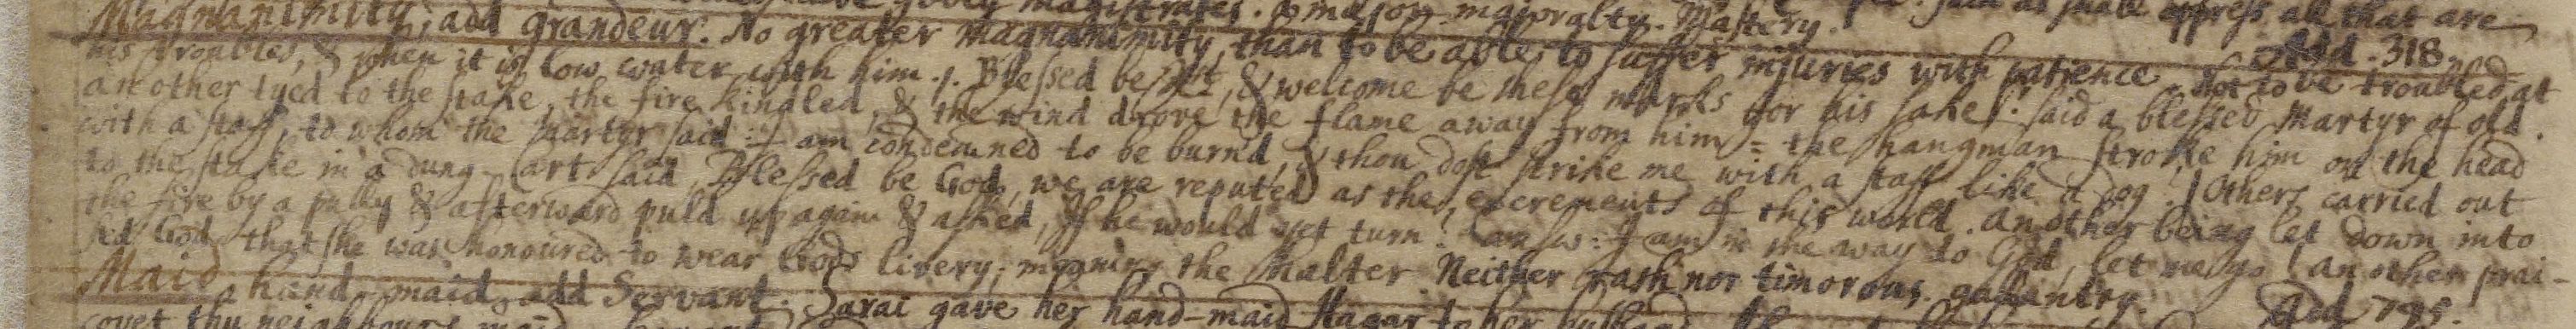 magistrates. mayoralty. Mastery. such as shall oppress all that are
Magnanimity; add grandeur: No greater magnanimity, than to be able to suffer injuries with patience. Not to be troubled at
Add. 318.
his troubles, & when it is low water with him. Blessed be & welcome be these marks for his sake: said a blessed Martyr of old.
another tyed to the stake, the fire kindled, & the wind drove the flame away from him = the hangman stroke him on the head
with a staff, to whom the Martyr said: I am condemned to be burnd, & thou dost strike me with a staff like a dog! Others carried out
to the stake in a dung-cart said, Blessed be God, we are reputed as the excrements of this world. another being let down into
the fire by a pully & afterward puld up again & asked, If he would yet turn? answ: I am in the way to God, let me go! another prai-
sed God that she was honoured to wear Gods livery; meaning the halter. Neither rash nor timorous. gallantry.
Maid a hand-maid, add Servant. Sarai gave her hand-maid Hagar to her Add 795.
covet thy neighbours maid